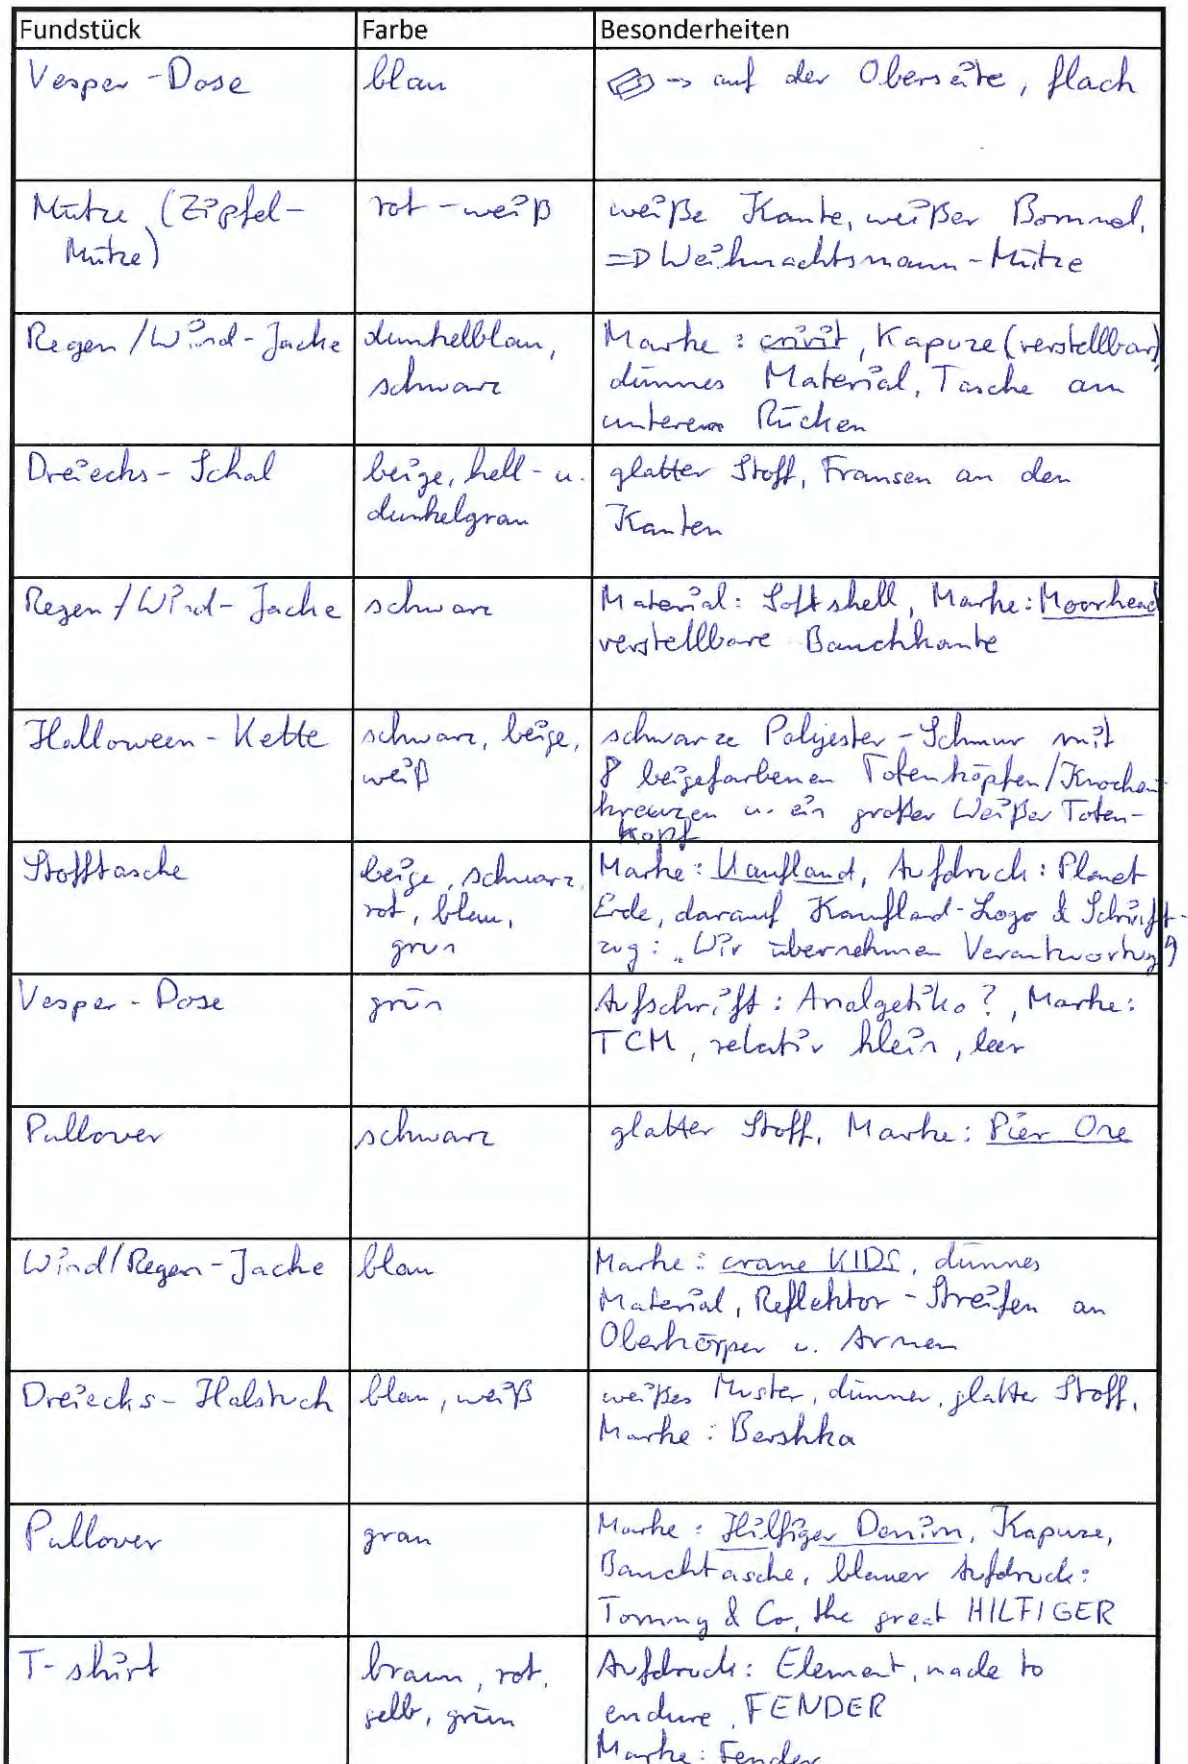 Fundstück Farbe Besonderheiten
Vesper-Dose blau -> auf der Oberseite, flach
Mütze (Zipfel- rot-weiß weiße Kante, weißer Bommel,
Mütze) => Weihnachtsmann-Mütze
Regen/Wind-Jacke dunkelblau, Marke: crivit, Kapuze (verstellbar)
schwarz dünnes Material, Tasche am
unteren Rücken
Dreiecks-Schal beige, hell- u. glatter Stoff, Fransen an den
dunkelgrau Kanten
Regen/Wind-Jacke schwarz Material: Softshell, Marke: Moorhead
verstellbare Bauchkante
Halloween-Kette schwarz, beige, schwarze Polyester-Schnur mit
weiß 8 beigefarbenen Totenköpfen/Knochen
kreuzen u. ein großer Weißer Toten-
kopf
Stofftasche beige, schwarz, Marke: Kaufland, Aufdruck: Planet
rot, blau, Erde, darauf Kaufland-Logo & Schrift-
grün zug: „Wir übernehmen Verantwortung"
Vesper-Dose grün Aufschrift: Analgetiko?, Marke:
TCM, relativ klein, leer
Pullover schwarz glatter Stoff, Marke: Pier One
Wind/Regen-Jacke blau Marke: crane KIDS, dünnes
Material, Reflektor-Streifen an
Oberkörper u. Armen
Dreiecks-Halstuch blau, weiß weißes Muster, dünner, glatter Stoff,
Marke: Bershka
Pullover grau Marke: Hilfiger Denim, Kapuze,
Bauchtasche, blauer Aufdruck:
Tommy & Co, the great HILFIGER
T-shirt braun, rot, Aufdruck: Element, made to
gelb, grün endure, FENDER
Marke: Fender